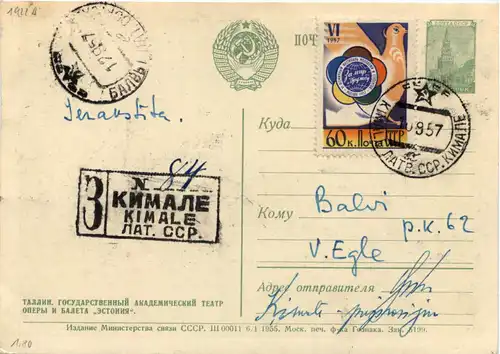 1922A
ПОЧ
VI
1957
За мир и дружбу
60 к. Почта СССР
ПОЧТА СССР
БАЛВЫ
12 9 57
0957
KIMALE
ЛАТВ. ССР. КИМАЛЕ
Ierakstīta.
Куда
N 84
З
КИМАЛЕ
KIMALE
ЛАТ. ССР.
Кому
Balvi
p.k. 62
V. Egle
Адрес отправителя
ТАЛЛИН. ГОСУДАРСТВЕННЫЙ АКАДЕМИЧЕСКИЙ ТЕАТР
ОПЕРЫ И БАЛЕТА „ЭСТОНИЯ“.
Издание Министерства связи СССР. Ш 00011 6/I 1955. Моск. печ. ф-ка Гознака. Зак. 5199.
1.80